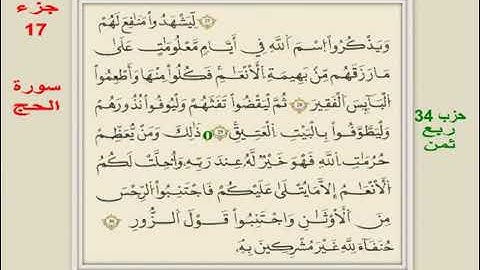 جزء
17
سورة
الحج
حزب 34
ربع
ثمن
لِّيَشْهَدُواْ مَنَٰفِعَ لَهُمْ
وَيَذْكُرُواْ اسْمَ اَللَّهِ فِےٓ أَيَّامٖ مَّعْلُومَٰتٍ عَلَىٰ
مَا رَزَقَهُم مِّنۢ بَهِيمَةِ اِلَانْعَٰمِ فَكُلُواْ مِنْهَا وَأَطْعِمُواْ
اُلْبَآئِسَ اَلْفَقِيرَ ثُمَّ لْيَقْضُواْ تَفَثَهُمْ وَلْيُوفُواْ نُذُورَهُمْ
وَلْيَطَّوَّفُواْ بِالْبَيْتِ اِلْعَتِيقِ ذَٰلِكَ وَمَنْ يُّعَظِّمْ
حُرُمَٰتِ اِللَّهِ فَهُوَ خَيْرٞ لَّهُۥ عِندَ رَبِّهِۦ وَأُحِلَّتْ لَكُمُ
اُلَانْعَٰمُ إِلَّا مَا يُتْلَىٰ عَلَيْكُمْ فَاجْتَنِبُواْ اُلرِّجْسَ
مِنَ اَلَاوْثَٰنِ وَاجْتَنِبُواْ قَوْلَ اَلزُّورِ
حُنَفَآءَ لِلهِ غَيْرَ مُشْرِكِينَ بِهِۦ